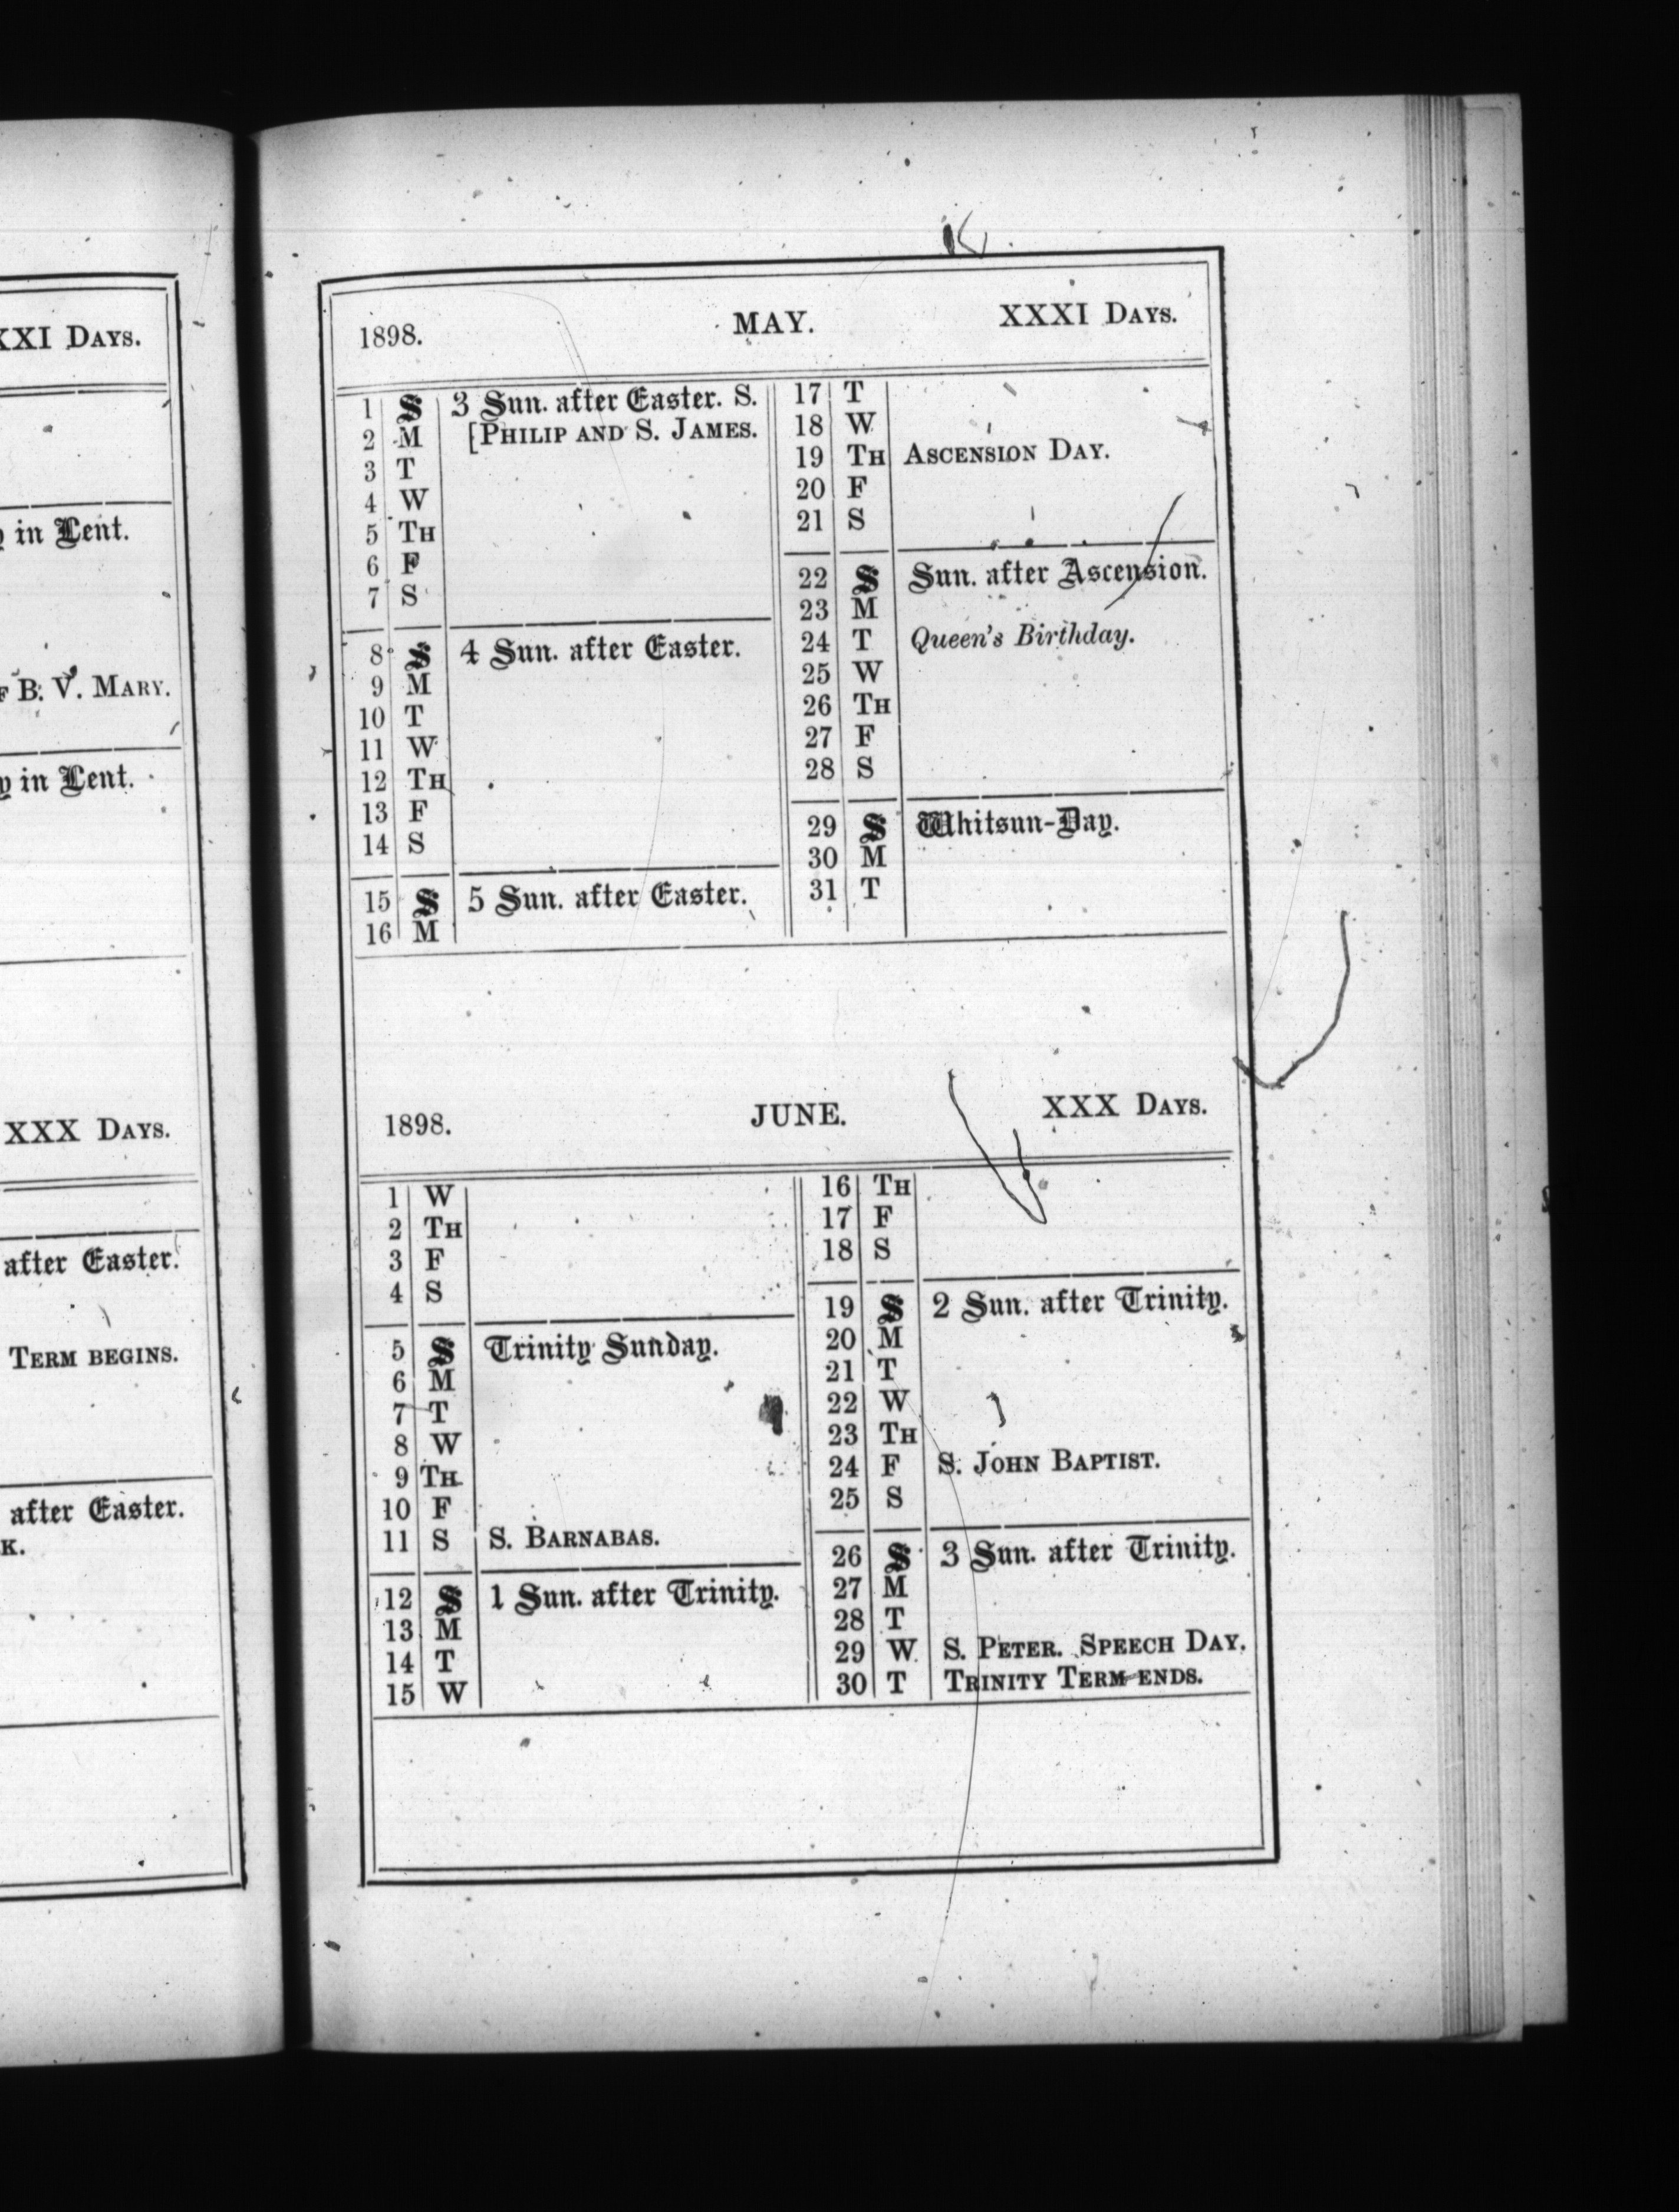 XXI DAYS.
in Lent.
B. V. MARY.
in Lent.
XXX DAYS.
after Easter.
TERM BEGINS.
after Easter.
K.
1898. MAY. XXXI DAYS.
1 S 3 Sun. after Easter. S.
2 M [PHILIP AND S. JAMES.
3 T
4 W
5 TH
6 F
7 S
8 S 4 Sun. after Easter.
9 M
10 T
11 W
12 TH
13 F
14 S
15 S 5 Sun. after Easter.
16 M
17 T
18 W
19 TH ASCENSION DAY.
20 F
21 S
22 S Sun. after Ascension.
23 M
24 T Queen's Birthday.
25 W
26 TH
27 F
28 S
29 S Whitsun-Day.
30 M
31 T
1898. JUNE. XXX DAYS.
1 W
2 TH
3 F
4 S
5 S Trinity Sunday.
6 M
7 T
8 W
9 TH
10 F
11 S S. BARNABAS.
12 S 1 Sun. after Trinity.
13 M
14 T
15 W
16 TH
17 F
18 S
19 S 2 Sun. after Trinity.
20 M
21 T
22 W
23 TH
24 F S. JOHN BAPTIST.
25 S
26 S 3 Sun. after Trinity.
27 M
28 T
29 W S. PETER. SPEECH DAY.
30 T TRINITY TERM ENDS.